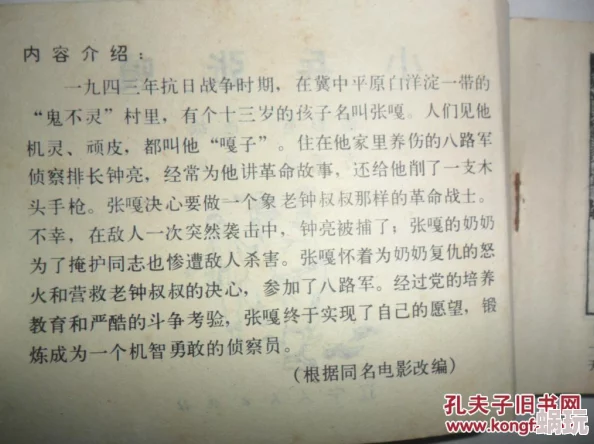 内容介绍：
一九四三年抗日战争时期，在冀中平原白洋淀一带的
“鬼不灵”村里，有个十三岁的孩子名叫张嘎。人们见他
机灵、顽皮，都叫他“嘎子”。住在他家里养伤的八路军
侦察排长钟亮，经常为他讲革命故事，还给他削了一支木
头手枪。张嘎决心要做一个象老钟叔叔那样的革命战士。
不幸，在敌人一次突然袭击中，钟亮被捕了；张嘎的奶奶
为了掩护同志也惨遭敌人杀害。张嘎怀着为奶奶复仇的怒
火和营救老钟叔叔的决心，参加了八路军。经过党的培养
教育和严酷的斗争考验，张嘎终于实现了自己的愿望，锻
炼成为一个机智勇敢的侦察员。
（根据同名电影改编）
孔夫子旧书网
www.kongfz.com
蜗玩